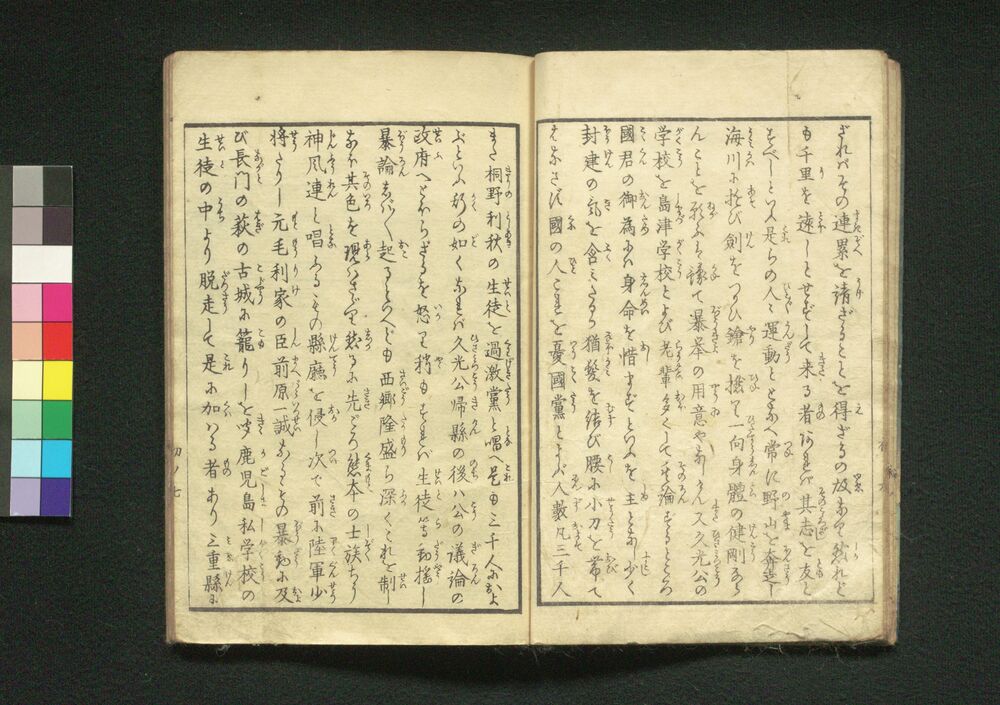 ざれバその連累を請ざることを得ざるの故なり然れど
も千里を速しとせずして来る者あれバ其志を友と
すべしといへ是らの人々運動ととなへ常に野山を奔走し
海川に浴び劍をつかひ鎗を携て一向身體の健剛ならん
ことを願ふも縁て暴举の用意やありけん又久光公の
学校を島津学校とよび老輩多くして其論ずるところ
國君の御為にハ身命を惜まずといふを主とし少しく
封建の気を含ミたるか猶髪を結び腰に小刀を帯て
はなさず國の人これを憂國黨とよぶ人數凡三千人
また桐野利秋の生徒を過激黨と唱へ是も三千人におよ
ぶといふ斯の如くなれバ久光公帰縣の後ハ公の議論の
政府へとほらざるを怒り稍もすれバ生徒等動揺し
暴論しばしば起るといへども西郷隆盛ら深くこれを制し
なほ其色を現ハさゞりし然るに先ごろ熊本の士族ちう
神風連と唱ふるもの縣廳を侵し次で前に陸軍少
将たりし元毛利家の臣前原一誠あることの暴動に及
び長門の萩の古城に籠りしを聞鹿児島私学校の
生徒の中より脱走して是に加ハる者あり三重縣に